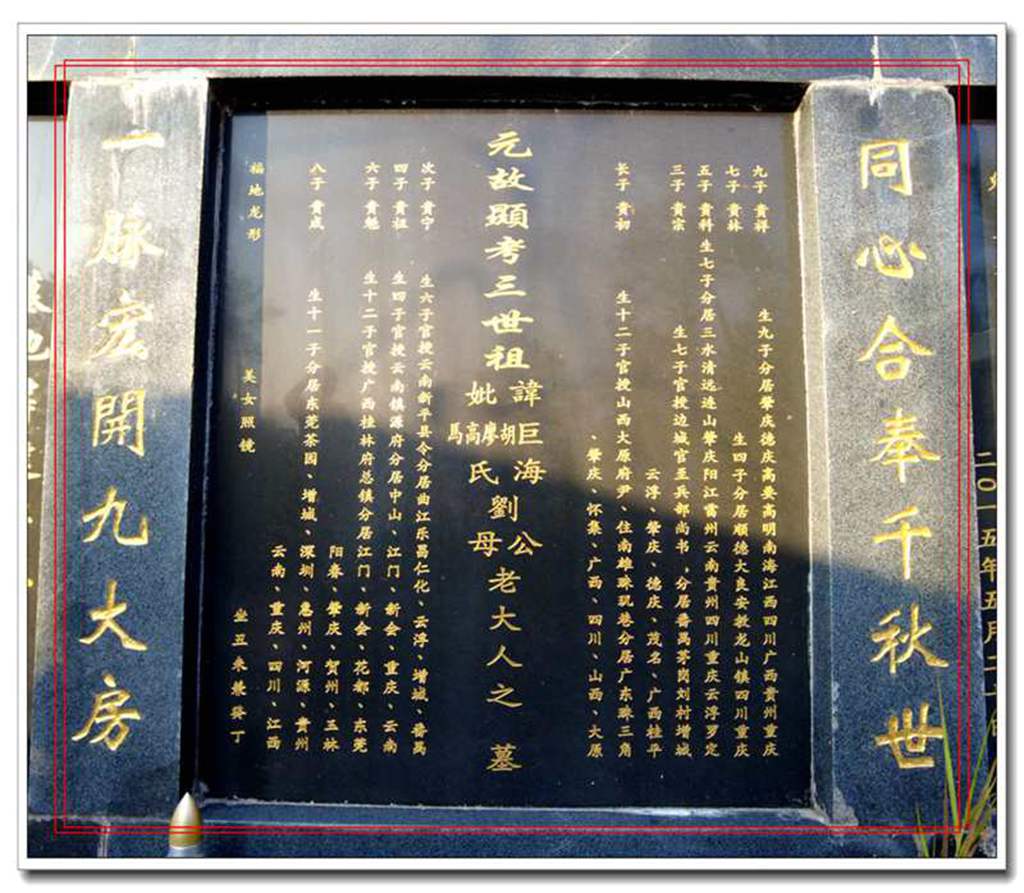 同心合奉千秋世
九子 贵祥 生九子分居肇庆德庆高要高明南海江西四川广西贵州重庆
七子 贵林 生四子分居顺德大良安教龙山镇四川重庆
五子 贵科 生七子分居三水清远连山肇庆阳江雷州云南贵州四川重庆云浮罗定
三子 贵宗 生七子官授边城官至兵部尚书，分居番禺茅岗刘村增城
云浮、肇庆、德庆、茂名、广西桂平
长子 贵初 生十二子官授山西大原府尹、住南雄珠玑巷分居广东珠三角
、肇庆、怀集、广西、四川、山西、大原
元故顯考三世祖
諱巨海劉公
妣胡廖高馬氏母
老大人之墓
次子 贵宁 生六子官授云南新平县令分居曲江乐昌仁化、云浮、增城、番禺
四子 贵祖 生四子官授云南镇源府分居中山、江门、新会、重庆、云南
六子 贵魁 生十二子官授广西桂林府总镇分居江门、新会、花都、东莞
阳春、肇庆、贺州、玉林
八子 贵成 生十一子分居东莞茶园、增城、深圳、惠州、河源、贵州
云南、重庆、四川、江西
福地龙形 美女照镜 坐丑未兼癸丁
一脉宏開九大房
二〇一五年五月二